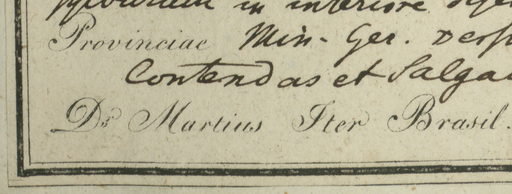 in interiore
Provinciae Min. Ger.
Contendas et Salga
Dr. Martius Iter Brasil.